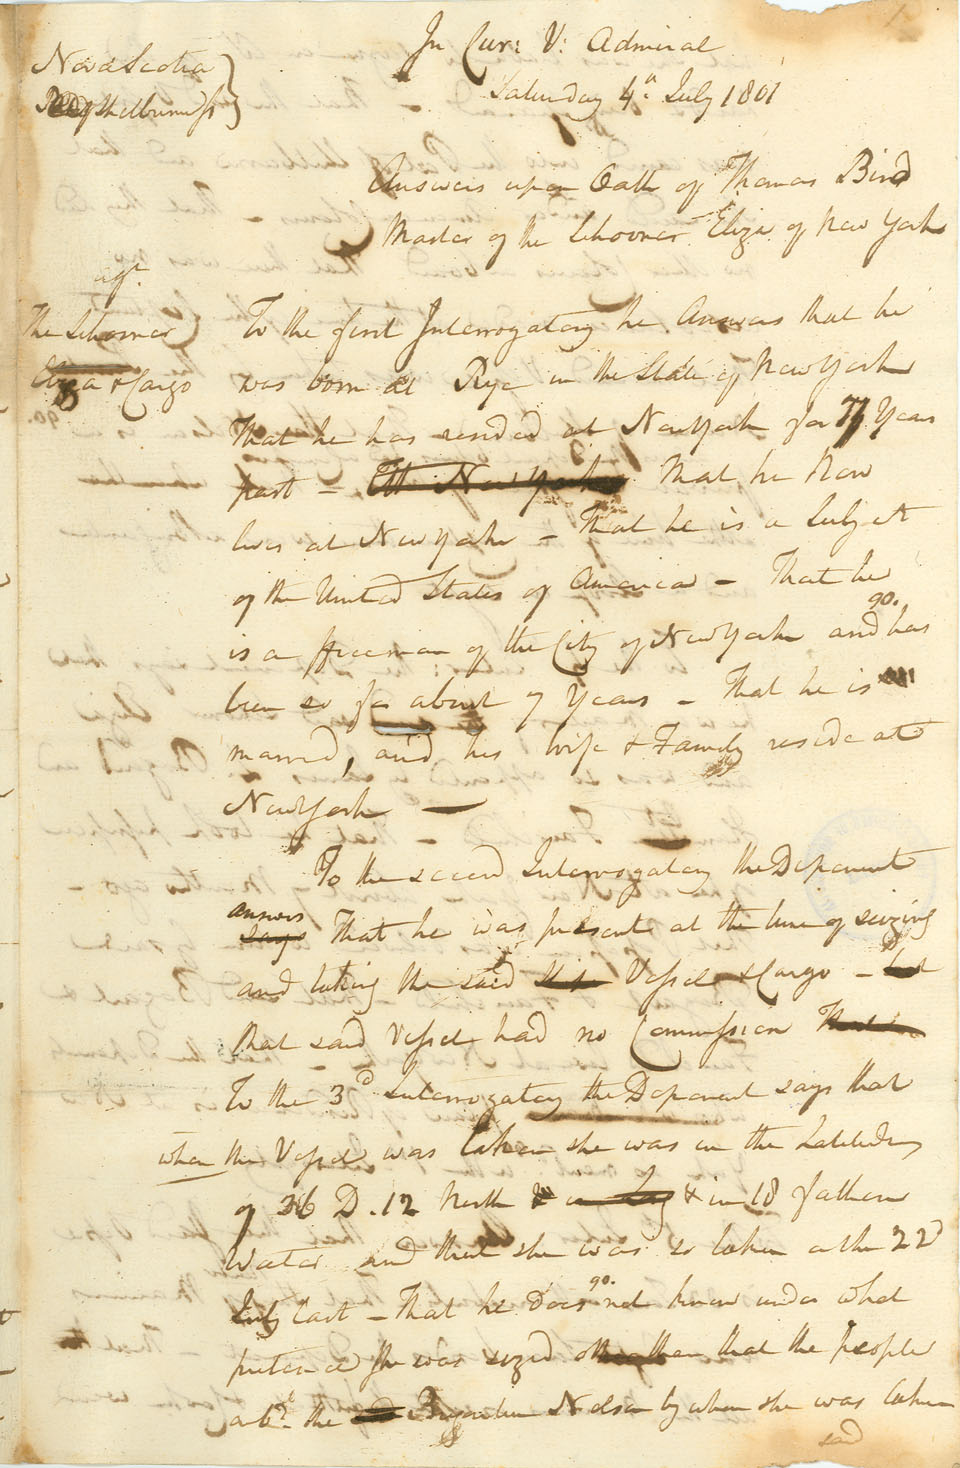 In Cur: V: Admiral
Saturday 4th July 1801
Nova Scotia
Shelburne ss
Answers upon Oath of Thomas Bird
Master of the Schooner Eliza of New York
agt.
The Schooner
Eliza & Cargo
To the first Interrogatory he Answers that he
was born at Rye in the State of New York
That he has resided at New York for 7 Years
past – That he Now
lives at New York – That he is a Subject
of the United States of America – That he
is a freeman of the City of New York and has
been so for about 7 Years – That he is
married, and his wife & Family reside at
New York —
To the second Interrogatory the Deponent
answers
says That he was present at the time of seizing
and taking the said Ship Vessel & Cargo –
that said Vessel had no Commission
To the 3d Interrogatory the Deponent says that
when the Vessel was taken she was in the Latitude
of 36 D. 12 North & in 18 fathom
Water and that she was so taken on the 22d
July last – That he does not know under what
pretence she was seized other than that the people
on bd. the Brigantine Nelson by whom she was taken
said